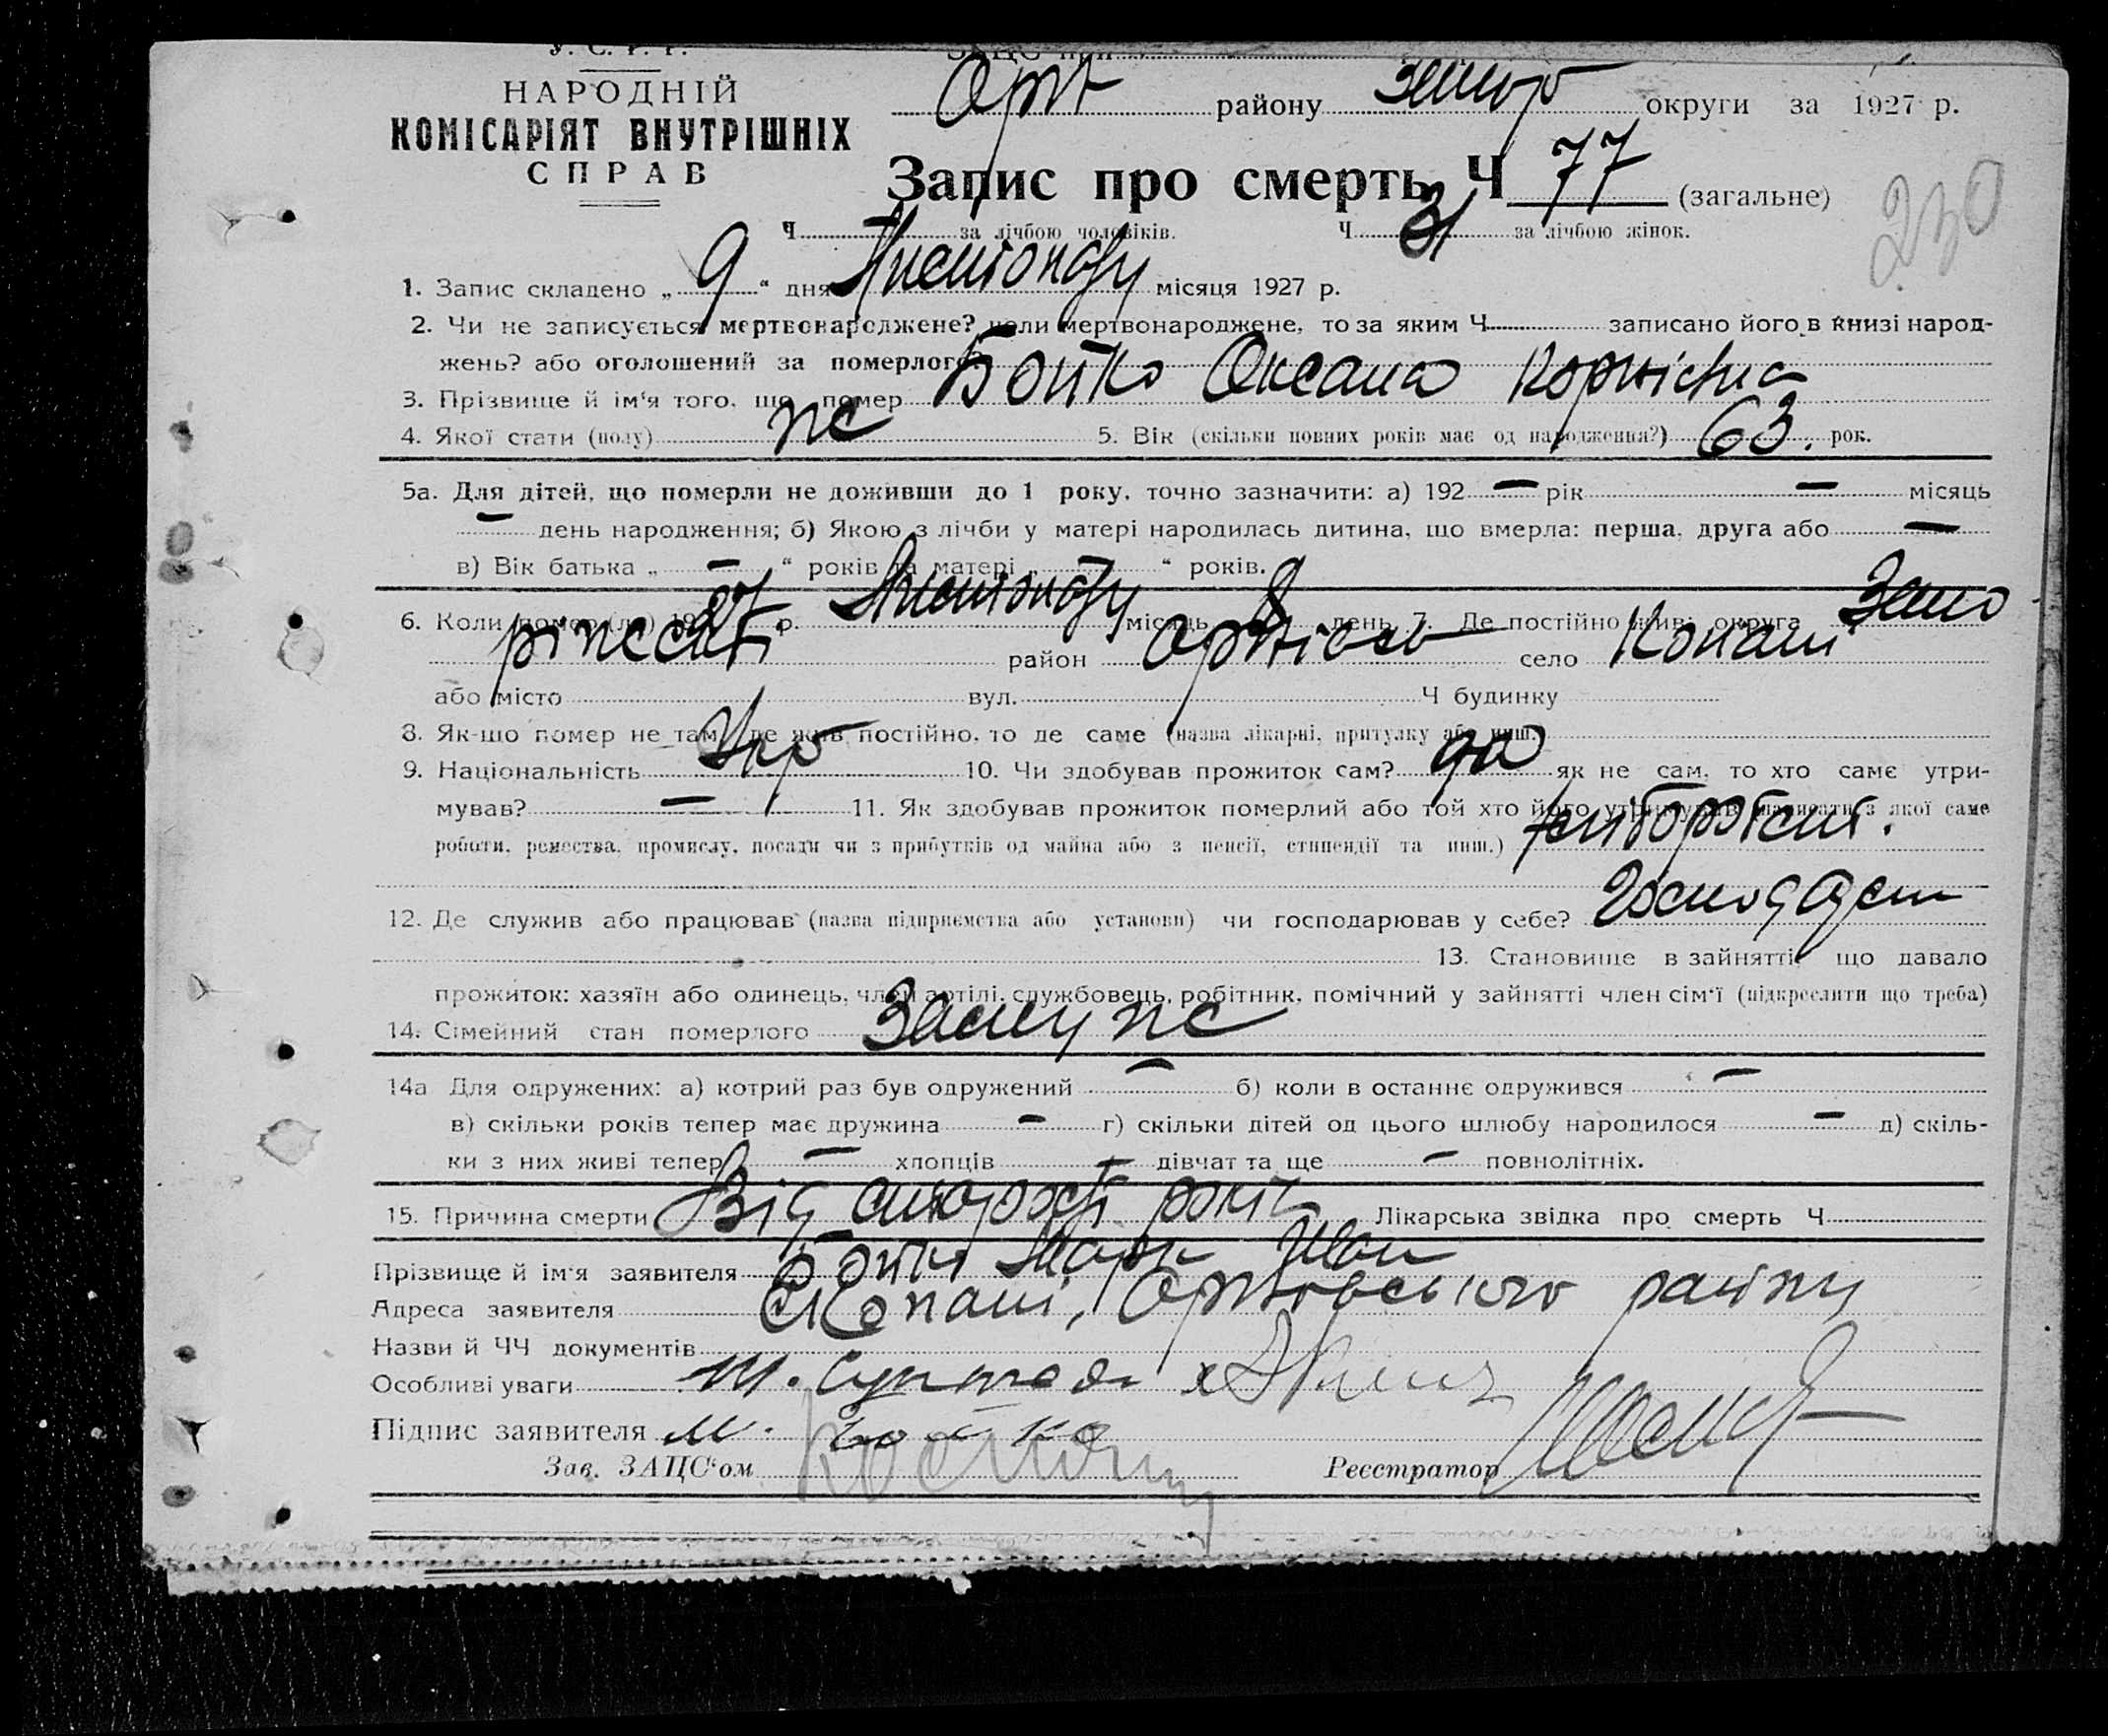 У. С. Р. Р.
НАРОДНІЙ
КОМІСАРІЯТ ВНУТРІШНІХ
СПРАВ
ЗАЦС при
Оріх району Запор округи за 1927 р.
Запис про смерть Ч 77 (загальне)
230
Ч за лічбою чоловіків. Ч 31 за лічбою жінок.
1. Запис складено „ 9 “ дня Листопаду місяця 1927 р.
2. Чи не записується мертвонароджене? коли мертвонароджене, то за яким Ч записано його в книзі народ-
жень? або оголошений за померлого?
3. Прізвище й ім'я того, що помер Бойко Оксана
4. Якої стати (полу) ж 5. Вік (скільки повних років має од народження?) 63. рок.
5а. Для дітей, що померли не доживши до 1 року, точно зазначити: а) 192 — рік — місяць
— день народження; б) Якою з лічби у матері народилась дитина, що вмерла: перша, друга або —
в) Вік батька „ — “ років та матері „ “ років.
6. Коли помер (ла) 1927 р. Листопаду місяць 8 день 7. Де постійно жив: округа Запо
ріжська район Оріхівськ село Копани
або місто вул. Ч будинку
8. Як-що помер не там, де жив постійно, то де саме (назва лікарні, притулку або инш.)
9. Національність Укр 10. Чи здобував прожиток сам? да як не сам, то хто саме утри-
мував? — 11. Як здобував прожиток померлий або той хто його утримував (написати з якої саме
роботи, ремества, промислу, посади чи з прибутків од майна або з пенсії, стипендії та инш.) хліборобств.
12. Де служив або працював (назва підприємства або установи) чи господарював у себе?
13. Становище в зайнятті, що давало
прожиток: хазяїн або одинець, член артілі, службовець, робітник, помічний у зайнятті член сім'ї (підкреслити що треба)
14. Сімейний стан померлого Замужс
14а Для одружених: а) котрий раз був одружений — б) коли в останнє одружився —
в) скільки років тепер має дружина — г) скільки дітей од цього шлюбу народилося — д) скіль-
ки з них живі тепер — хлопців — дівчат та ще — повнолітніх.
15. Причина смерти Від старости років Лікарська звідка про смерть Ч
Прізвище й ім'я заявителя Бойко Марк Иван
Адреса заявителя с. Копани, Оріхівського району
Назви й ЧЧ документів
Особливі уваги
Підпис заявителя М. Бойко
Зав. ЗАЦС'ом
Реєстратор